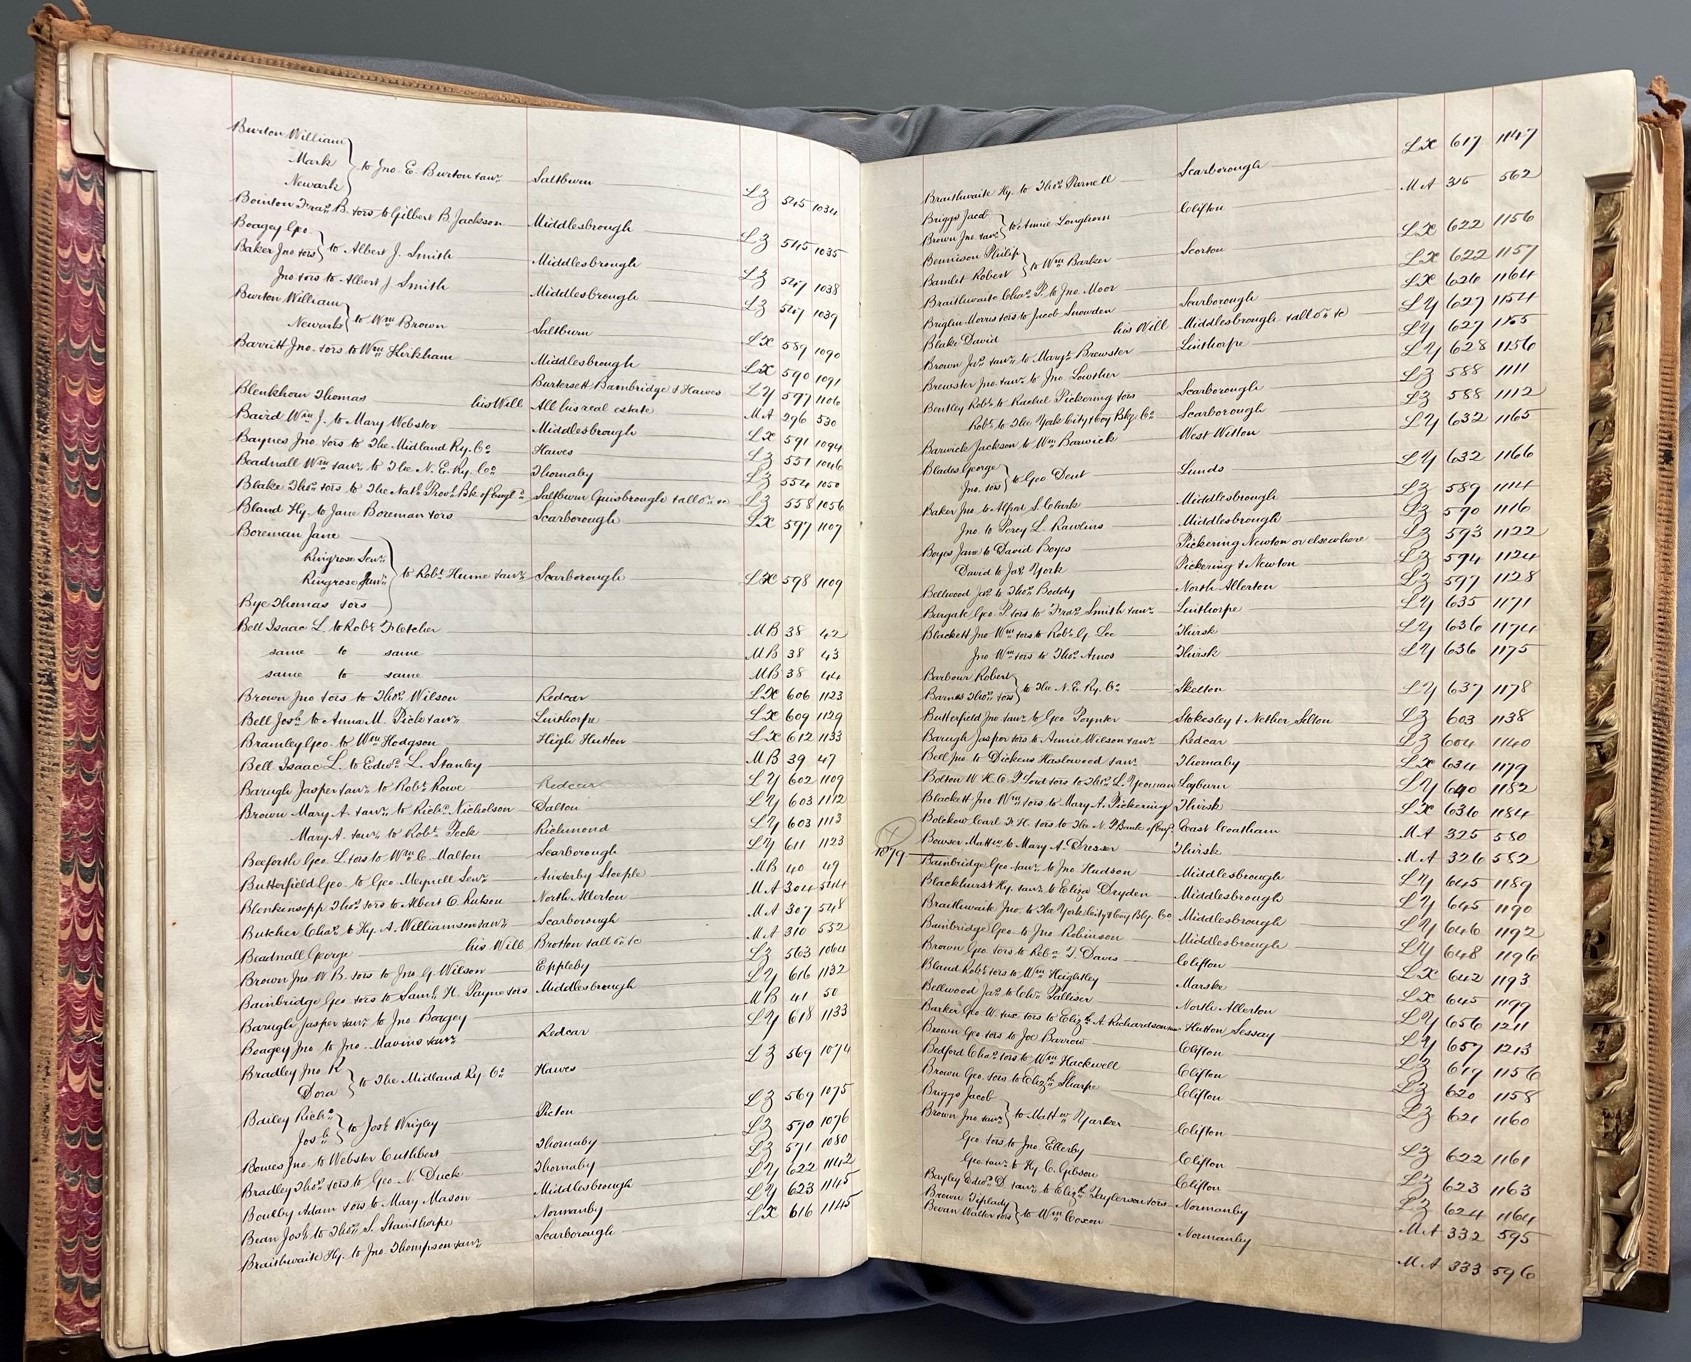 Burton William
Mark
Newark } to Jno. E. Burton & anr. Saltburn LZ 545 1034
Bointon Fras. B. & ors to Gilbert B. Jackson Middlesbrough LZ 545 1035
Boagey Geo.
Baker Jno & ors } to Albert J. Smith Middlesbrough LZ 547 1038
Jno & ors to Albert J Smith Middlesbrough LZ 547 1039
Burton William
Newark } to Wm Brown Saltburn LX 589 1090
Barritt Jno. & ors to Wm Kirkham Middlesbrough LX 590 1091
Burtersett Bainbridge & Hawes LY 597 1106
Blenkhorn Thomas his Will All his real estate MA 296 530
Baird Wm J. to Mary Webster Middlesbrough LX 591 1094
Baynes Jno. & ors to The Midland Ry. Co. Hawes LZ 551 1046
Beadnall Wm & anr. to The N. E. Ry. Co. Thornaby LZ 554 1050
Blake Thos. & ors to The Natl. Provl. Bk of Engld. Saltburn Guisbrough & all ors &c LZ 558 1056
Bland Hy. to Jane Boreman & ors Scarborough LX 597 1107
Boreman Jane
Ringrose Senr.
Ringrose Junr.
Bye Thomas & ors } to Robt. Hume & anr. Scarborough LX 598 1109
Bell Isaac L. to Robt. Fletcher MB 38 42
same to same MB 38 43
same to same MB 38 44
Brown Jno & ors to Thos. Wilson Redcar LX 606 1123
Bell Josh. to Anna M. Picke & anr. Linthorpe LX 609 1129
Bramley Geo. to Wm Hodgson High Hutton LX 612 1133
Bell Isaac L. to Edwd. L. Stanley MB 39 47
Barugh Jasper & anr. to Robt. Rowe Redcar LY 602 1109
Brown Mary A. & anr. to Richd. Nicholson Dalton LY 603 1112
Mary A. & anr. to Robt. Peck Richmond LY 603 1113
Beeforth Geo. L. & ors to Wm C. Malton Scarborough LY 611 1123
Butterfield Geo. to Geo. Meynell Senr. Ainderby Steeple MB 40 49
Blenkinsopp Thos. & ors to Albert O. Rutson North Allerton MA 304 544
Butcher Chas. to Hy. A. Williamson & anr. Scarborough MA 307 548
Beadnall George his Will Brotton & all ors &c MA 310 552
Brown Jno. W. B. & ors to Jno. G. Wilson Eppleby LZ 563 1064
Bainbridge Geo & ors to Saml. H. Payne & ors Middlesbrough LY 616 1132
Barugh Jasper & anr. to Jno. Boagey MB 41 50
Boagey Jno. to Jno. Mavins & anr. Redcar LY 618 1133
Bradley Jno. R
Dora } to The Midland Ry. Co. Hawes LZ 569 1074
Bailey Richd.
Josh. } to Josh Wrigley Picton LZ 569 1075
Bowes Jno. to Webster Cuthbert Thornaby LZ 570 1076
Bradley Thos. & ors to Geo. N. Duck Thornaby LZ 571 1080
Boulby Adam & ors to Mary Mason Middlesbrough LY 622 1142
Bean Josh. to Thos. S. Stainthorpe Normanby LY 623 1145
Braithwaite Hy. to Jno. Thompson & anr. Scarborough LX 616 1145
Braithwaite Hy. to Thos. Parnell Scarborough LX 617 1147
Briggs Jacob
Brown Jno. & anr. } to Annie Longhorn Clifton MA 315 562
Bennison Philip
Bamlet Robert } to Wm Barker Scorton LX 622 1156
Braithwaite Chas. P. to Jno. Moor LX 622 1157
Briglin Morris & ors to Jacob Snowden Scarborough LX 626 1164
Blake David his Will Middlesbrough & all ors &c LY 627 1154
Brown Jas. & anr. to Margt. Brewster Linthorpe LY 627 1155
Brewster Jno. & anr. to Jno. Lowther LY 628 1156
Bentley Robt. to Rachel Pickering & ors Scarborough LZ 588 1111
Robt. to The York City & Coy Bkg. Co. Scarborough LZ 588 1112
Barwick Jackson to Wm Barwick West Witton LY 632 1165
Blades George
Jno. & ors } to Geo Dent Lunds LY 632 1166
Baker Jno. to Alfred S. Clark Middlesbrough LZ 589 1114
Jno. to Percy L. Rawlins Middlesbrough LZ 590 1116
Boyes Jane to David Boyes Pickering Newton or elsewhere LZ 593 1122
David to Jas. York Pickering & Newton LZ 594 1124
Bellwood Jas. to Thos. Boddy North Allerton LZ 597 1128
Burgate Geo. P. & ors to Fras. Smith & anr. Linthorpe LY 635 1171
Blackett Jno Wm & ors to Robt. G. Lee Thirsk LY 636 1174
Jno Wm & ors to Thos. Amos Thirsk LY 636 1175
Barbour Robert
Barnes Thos. & ors } to The N. E. Ry. Co. Skelton LY 637 1178
Butterfield Jno. & anr. to Geo Poynter Stokesley & Nether Silton LZ 603 1138
Barugh Jasper & ors to Annie Wilson & anr. Redcar LZ 604 1140
Bell Jno. to Dickens Haslewood & anr. Thornaby LX 634 1179
Bolton W. H. C. P. Lord & ors to Thos. L. Yeoman Leyburn LY 640 1182
Blackett Jno. Wm & ors to Mary A. Pickering Thirsk LX 636 1184
Bolckow Carl F. H. & ors to The N. P. Bank of Engd. East Coatham MA 325 580
Bowser Mattw. to Mary A. Dresser Thirsk MA 326 582
1879
Bainbridge Geo. & anr. to Jno Hudson Middlesbrough LY 645 1189
Blackhurst Hy. & anr. to Eliza Dryden Middlesbrough LY 645 1190
Braithwaite Jno. to The York City & Coy Bkg. Co Middlesbrough LY 646 1192
Bainbridge Geo. to Jno. Robinson Middlesbrough LY 648 1196
Brown Geo. & ors to Robt. T. Davis Clifton LX 642 1193
Bland Robt. & ors to Wm Keightley Marske LX 645 1199
Bellwood Jas. to Chr. Palliser North Allerton LY 656 1211
Barker Geo. W. & ux. & ors to Elizth. A. Richardson & anr Hutton Sessay LY 657 1213
Brown Geo & ors to Joe Barrow Clifton LZ 619 1156
Bedford Chas. & ors to Wm Hackwell Clifton LZ 620 1158
Brown Geo. & ors to Elizth. Sharpe Clifton LZ 621 1160
Briggs Jacob
Brown Jno. & anr. } to Mattw. Yarker Clifton LZ 622 1161
Geo. & ors to Jno. Ellerby Clifton LZ 623 1163
Geo. & anr. to Hy. C. Gibson Clifton LZ 624 1164
Bayley Edwd. D. & anr. to Elizth. Taylerson & ors Normanby MA 332 595
Brown Tiplady
Bevan Walter & ors } to Wm Coxon Normanby MA 333 596